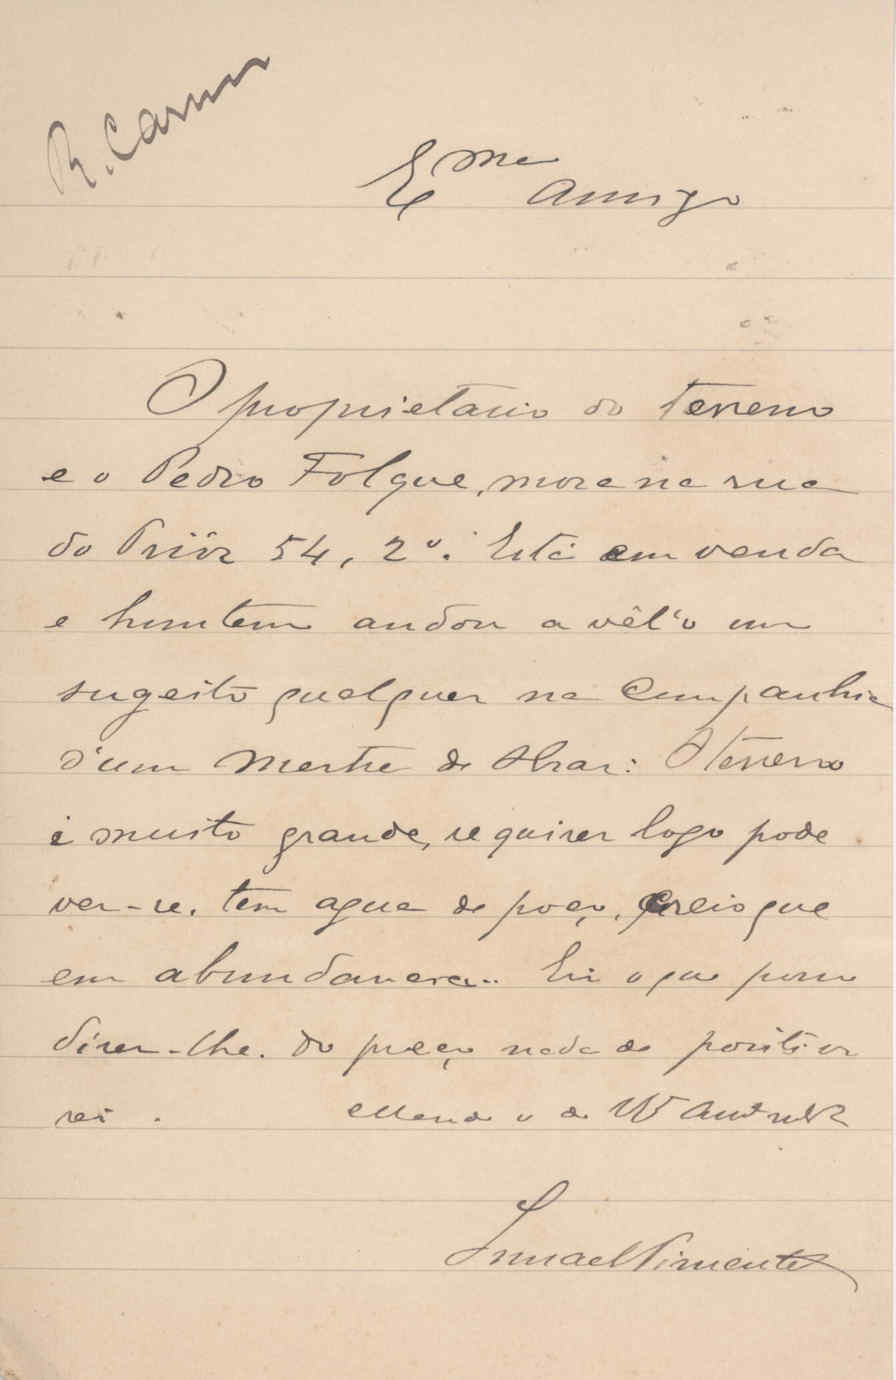 Exmo
Amigo
O proprietario do terreno
e o Pedro Folque, mora na rua
do Priôr 54, 2º. Está em venda
e hontem andou a vêl'o um
sugeito qualquer na companhia
d'um Mestre de Obras: O terreno
é muito grande, se quizer logo pode
ver-se. tem agua de poço, creio que
em abundancia.. Eis o que posso
dizer-lhe. Do preço nada de positivo
sei. Mande o de V
Ismael Pimentel